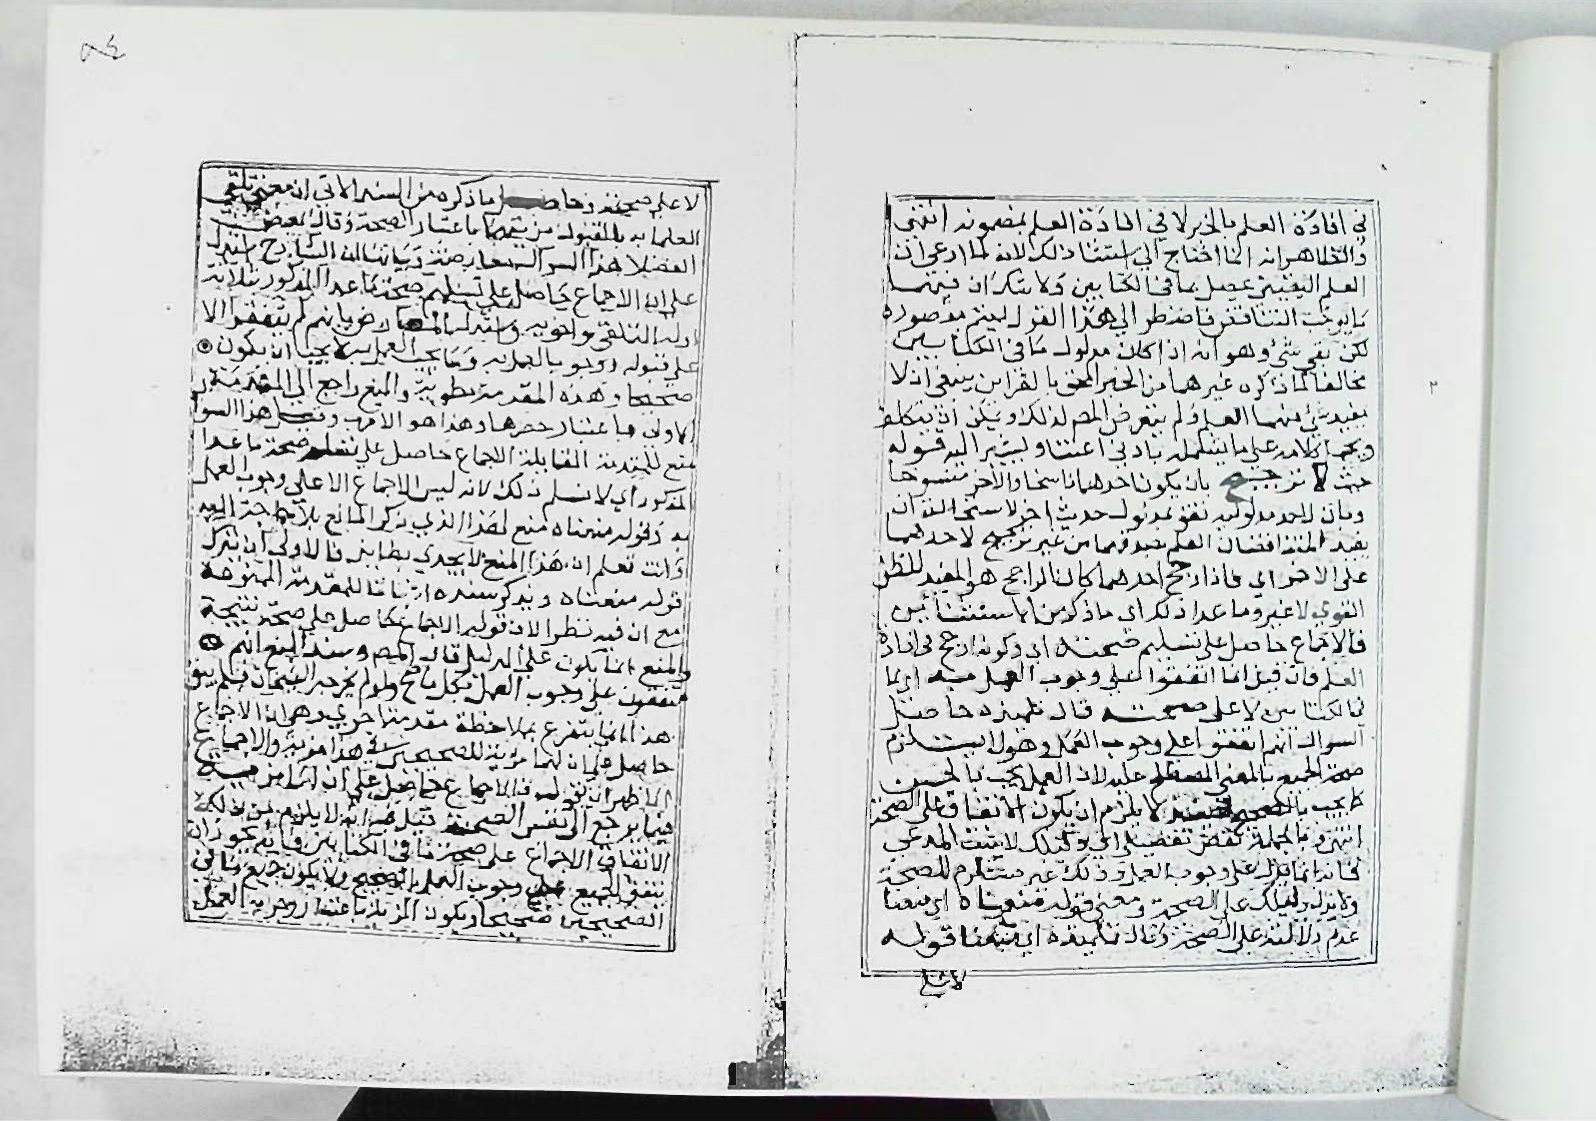 في افادة العلم بالخبر لا في افادة العلم بمضمونه انتهى
والظاهر انه انما احتاج الى استثناء ذلك لانه لما ادعى ان
العلم اليقيني يحصل بما في الكتابين ولا شك ان فيهما
ما يوجب التناقض فاضطر الى هذا القول ليتم مقصوده
لكن بقي شيء وهو انه اذا كان مدلول ما في الكتابين
مخالفا لما ذكره غيرهما من الخبر المحتف بالقراين ينبغي ان لا
يفيد شيء منهما العلم ولم يتعرض المص لذلك ويمكن ان يتكلف
ويحمل كلامه على ما يشمله بادنى اعتناء ويشير اليه قوله
حيث لا ترجيح بان يكون احدهما ناسخا والاخر منسوخا
وبان لاحد مدلوليه تقوى بمدلول حديث اخر لاستحالة ان
يفيد المتناقضان العلم بصدقهما من غير ترجيح لاحدهما
على الاخر اي فاذا رجح احدهما كان الراجح هو المفيد للظن
القوي لا غير وما عدا ذلك اي ما ذكر من الاستثنائين
فالاجماع حاصل على تسليم صحته اي وكونه ارجح في افادة
العلم فان قيل انما اتفقوا على وجوب العمل به اي بما
في الكتابين لا على صحته قال تلميذه حاصل
السوال انهم اتفقوا على وجوب العمل وهو لا يستلزم
صحة الجميع بالمعنى المصطلح عليه لان العمل يجب بالحسن
كما يجب بالصحيح فلا يلزم ان يكون الاتفاق على الصحة
انتهى وبالجملة نقض تفصيلي اي دليلك لا يثبت المدعى
فانه انما يدل على وجوب العمل وذلك غير مستلزم للصحة
ولا يدل دليلك على الصحة ومعنى قوله منعناه اي منعنا
عدم دلالته على الصحة وقال تلميذه اي منعنا قوله
لا على
لا على صحته وحاصل ما ذكره من السند الاتي ان معنى تلقي
العلما به بالمقبول مزيتهما باعتبار الصحة وقال بعض
الفضلا هذا السوال معارضة وبيانه ان الشارح استدل
على ان الاجماع حاصل على تسليم صحة ما عدا المذكور بدلالة
ادلة التلقي بالقبول واستدل المعارض بانهم لم يتفقوا الا
على قبوله ووجوب العمل به وما يجب العمل به لا يجب ان يكون
صحيحا وهذه المقدمة مطوية والمنع راجع الى المقدمة
الاولى باعتبار حصرها وهذا هو الاقرب وقيل هذا السوال
منع للمقدمة القايلة الاجماع حاصل على تسليم صحة ما عدا
المذكور اي لا نسلم ذلك لانه ليس الاجماع الا على وجوب العمل
به وقوله منعناه منع لهذا الذي ذكر المانع بلا حاجة اليه
وانت تعلم ان هذا المنع لا يجدي بطايل فالاولى ان يترك
قوله منعناه ويذكر سنده اثباتا للمقدمة الممنوعة
مع ان فيه نظرا لان قوله الاجماع حاصل على صحته نتيجة
والمنع انما يكون على الدليل قال المص وسند المنع انهم
متفقون على وجوب العمل بكل ما صح ولو لم يخرجه الشيخان فلم يبق
هذا انما يتفرع بملاحظة مقدمة اخرى وهي ان الاجماع
حاصل على ان لهما مزية للصحيحين في هذا مزية والاجماع
الاظهر ان يقول فالاجماع حاصل على ان لهما مزية
فيما يرجع الى نفس الصحة قيل عليه انه لا يلزم من ذلك
الاتفاق الاجماع على صحة ما في الكتابين فانه يجوز ان
يتفق الجميع على وجوب العمل بالصحيح ولا يكون جميع ما في
الصحيحين صحيحا ويكون المزية باعتبار وجوب العمل